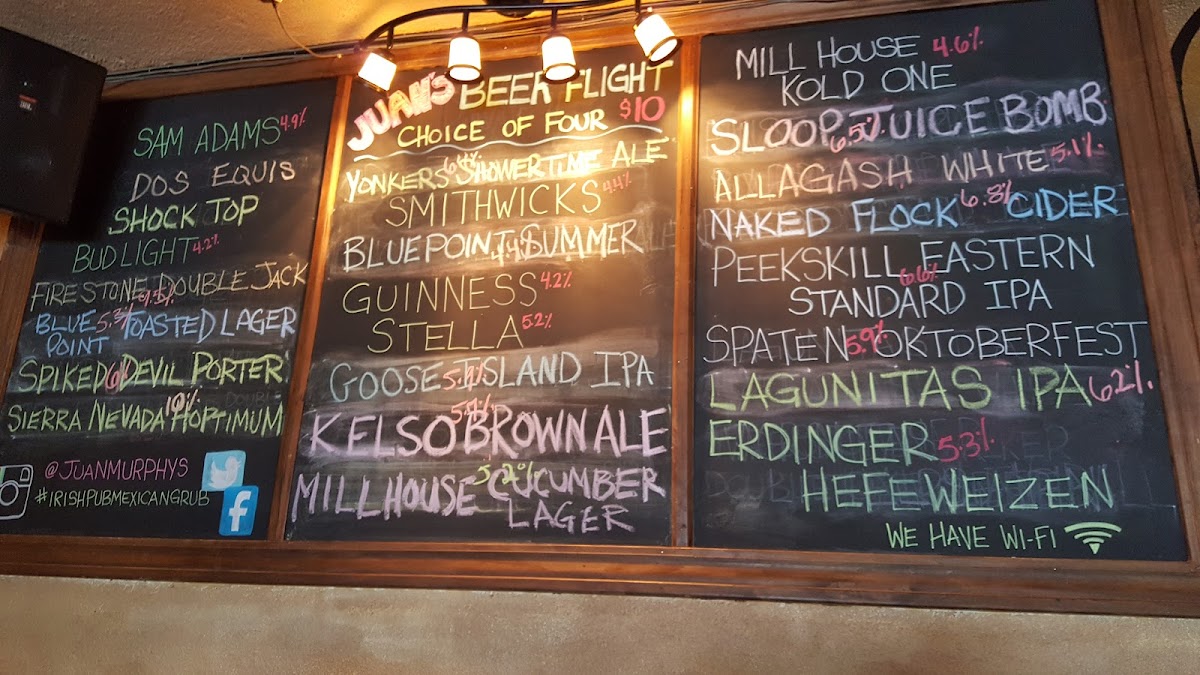 SAM ADAMS 4.9%
DOS EQUIS
SHOCK TOP
BUD LIGHT 4.2%
FIRESTONE DOUBLE JACK
9.5%
BLUE 5.3% TOASTED LAGER
POINT
SPIKED 6% DEVIL PORTER
10%
SIERRA NEVADA HOPTIMUM
@JUANMURPHYS
#IRISHPUBMEXICANGRUB
JUAN'S BEER FLIGHT
CHOICE OF FOUR $10
YONKERS SHOWERTIME ALE
SMITHWICKS 4.4%
BLUEPOINT SUMMER
GUINNESS 4.2%
STELLA 5.2%
GOOSE ISLAND IPA
KELSO BROWN ALE
MILLHOUSE 5.2% CUCUMBER
LAGER
MILL HOUSE 4.6%
KOLD ONE
SLOOP 6.5% JUICE BOMB
ALLAGASH WHITE 5.1%
NAKED FLOCK 6.8% CIDER
PEEKSKILL EASTERN
6.6%
STANDARD IPA
SPATEN 5.9% OKTOBERFEST
LAGUNITAS IPA 6.2%
ERDINGER 5.3%
HEFEWEIZEN
WE HAVE WI-FI